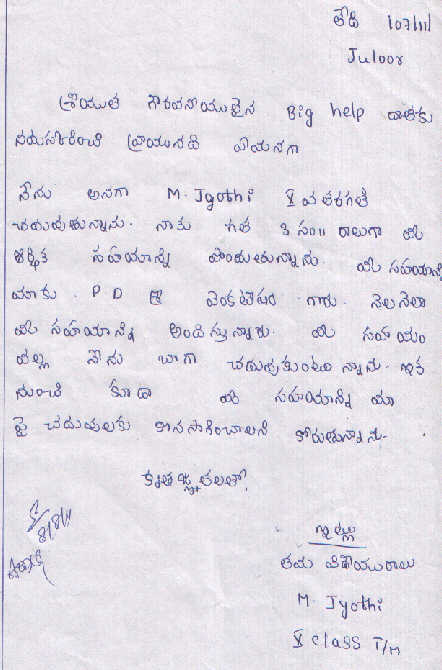 తేది 1/07/11
Juloor
శ్రీయుత గౌరవనీయులైన Big help దాతకు
నమస్కరించి వ్రాయునది ఏమనగా
నేను అనగా M. Jyothi X వ తరగతి
చదువుతున్నాను. నాకు గత 3 సం॥ రాలుగా మీ
ఆర్థిక సహాయాన్ని పొందుతున్నాను. మీ సహాయాన్ని
మాకు. P D శ్రీ వెంకటేశం గారు. నెలనెలా
మీ సహాయాన్ని అందిస్తున్నారు. మీ సహాయం
వల్ల నేను బాగా చదువుకుంటున్నాను. ఇక
నుంచి కూడా మీ సహాయాన్ని మా
పై చదువులకు కొనసాగించాలని కోరుతున్నాను.
కృతజ్ఞతలతో,
8/8/11
ఇట్లు
తమ విధేయురాలు
M. Jyothi
X class T/M